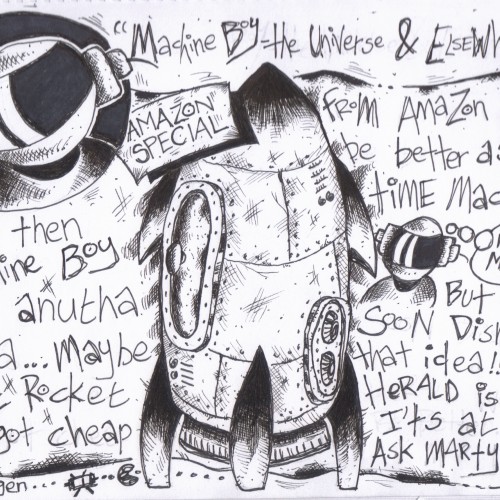 "Machine Boy - the Universe & Elsewh
AMAZON
SPECIAL"
then
ine Boy
anutha
a... Maybe
Rocket
got cheap
gen...
From Amazon
be better as
time Mac
But
Soon Dis
that idea!
Herald is
I'ts at
Ask Marty